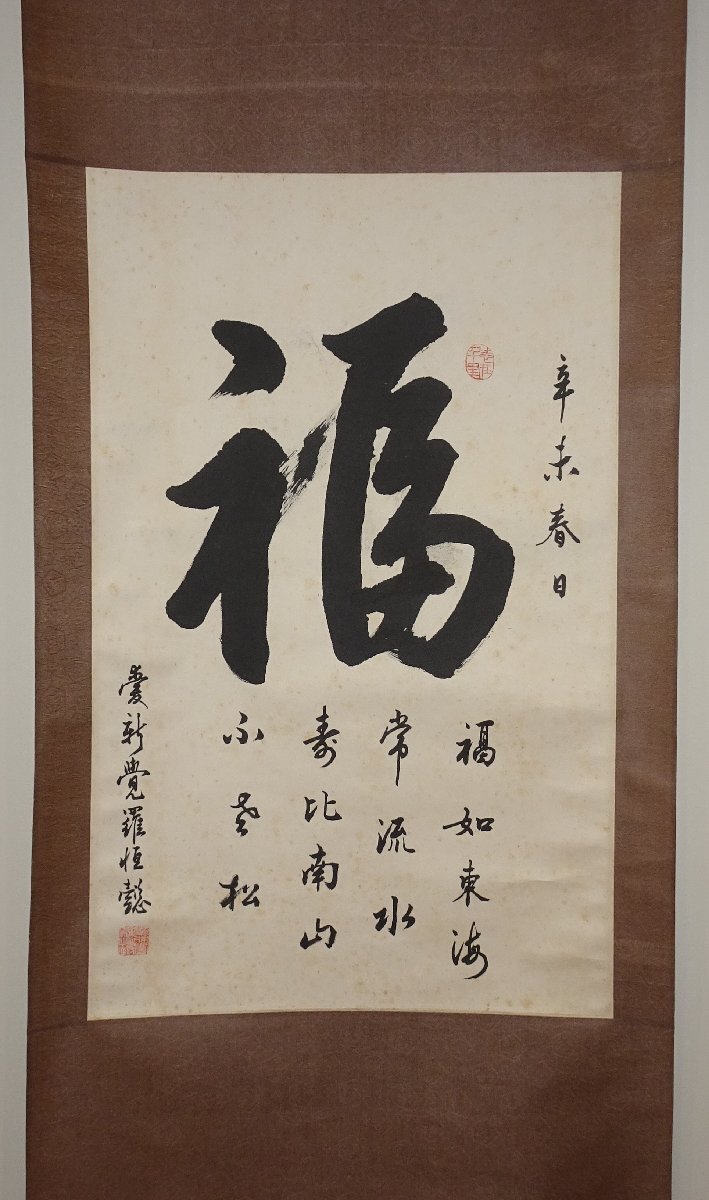 辛未春日
福
福如東海
常流水
寿比南山
不老松
愛新覺羅恒懿